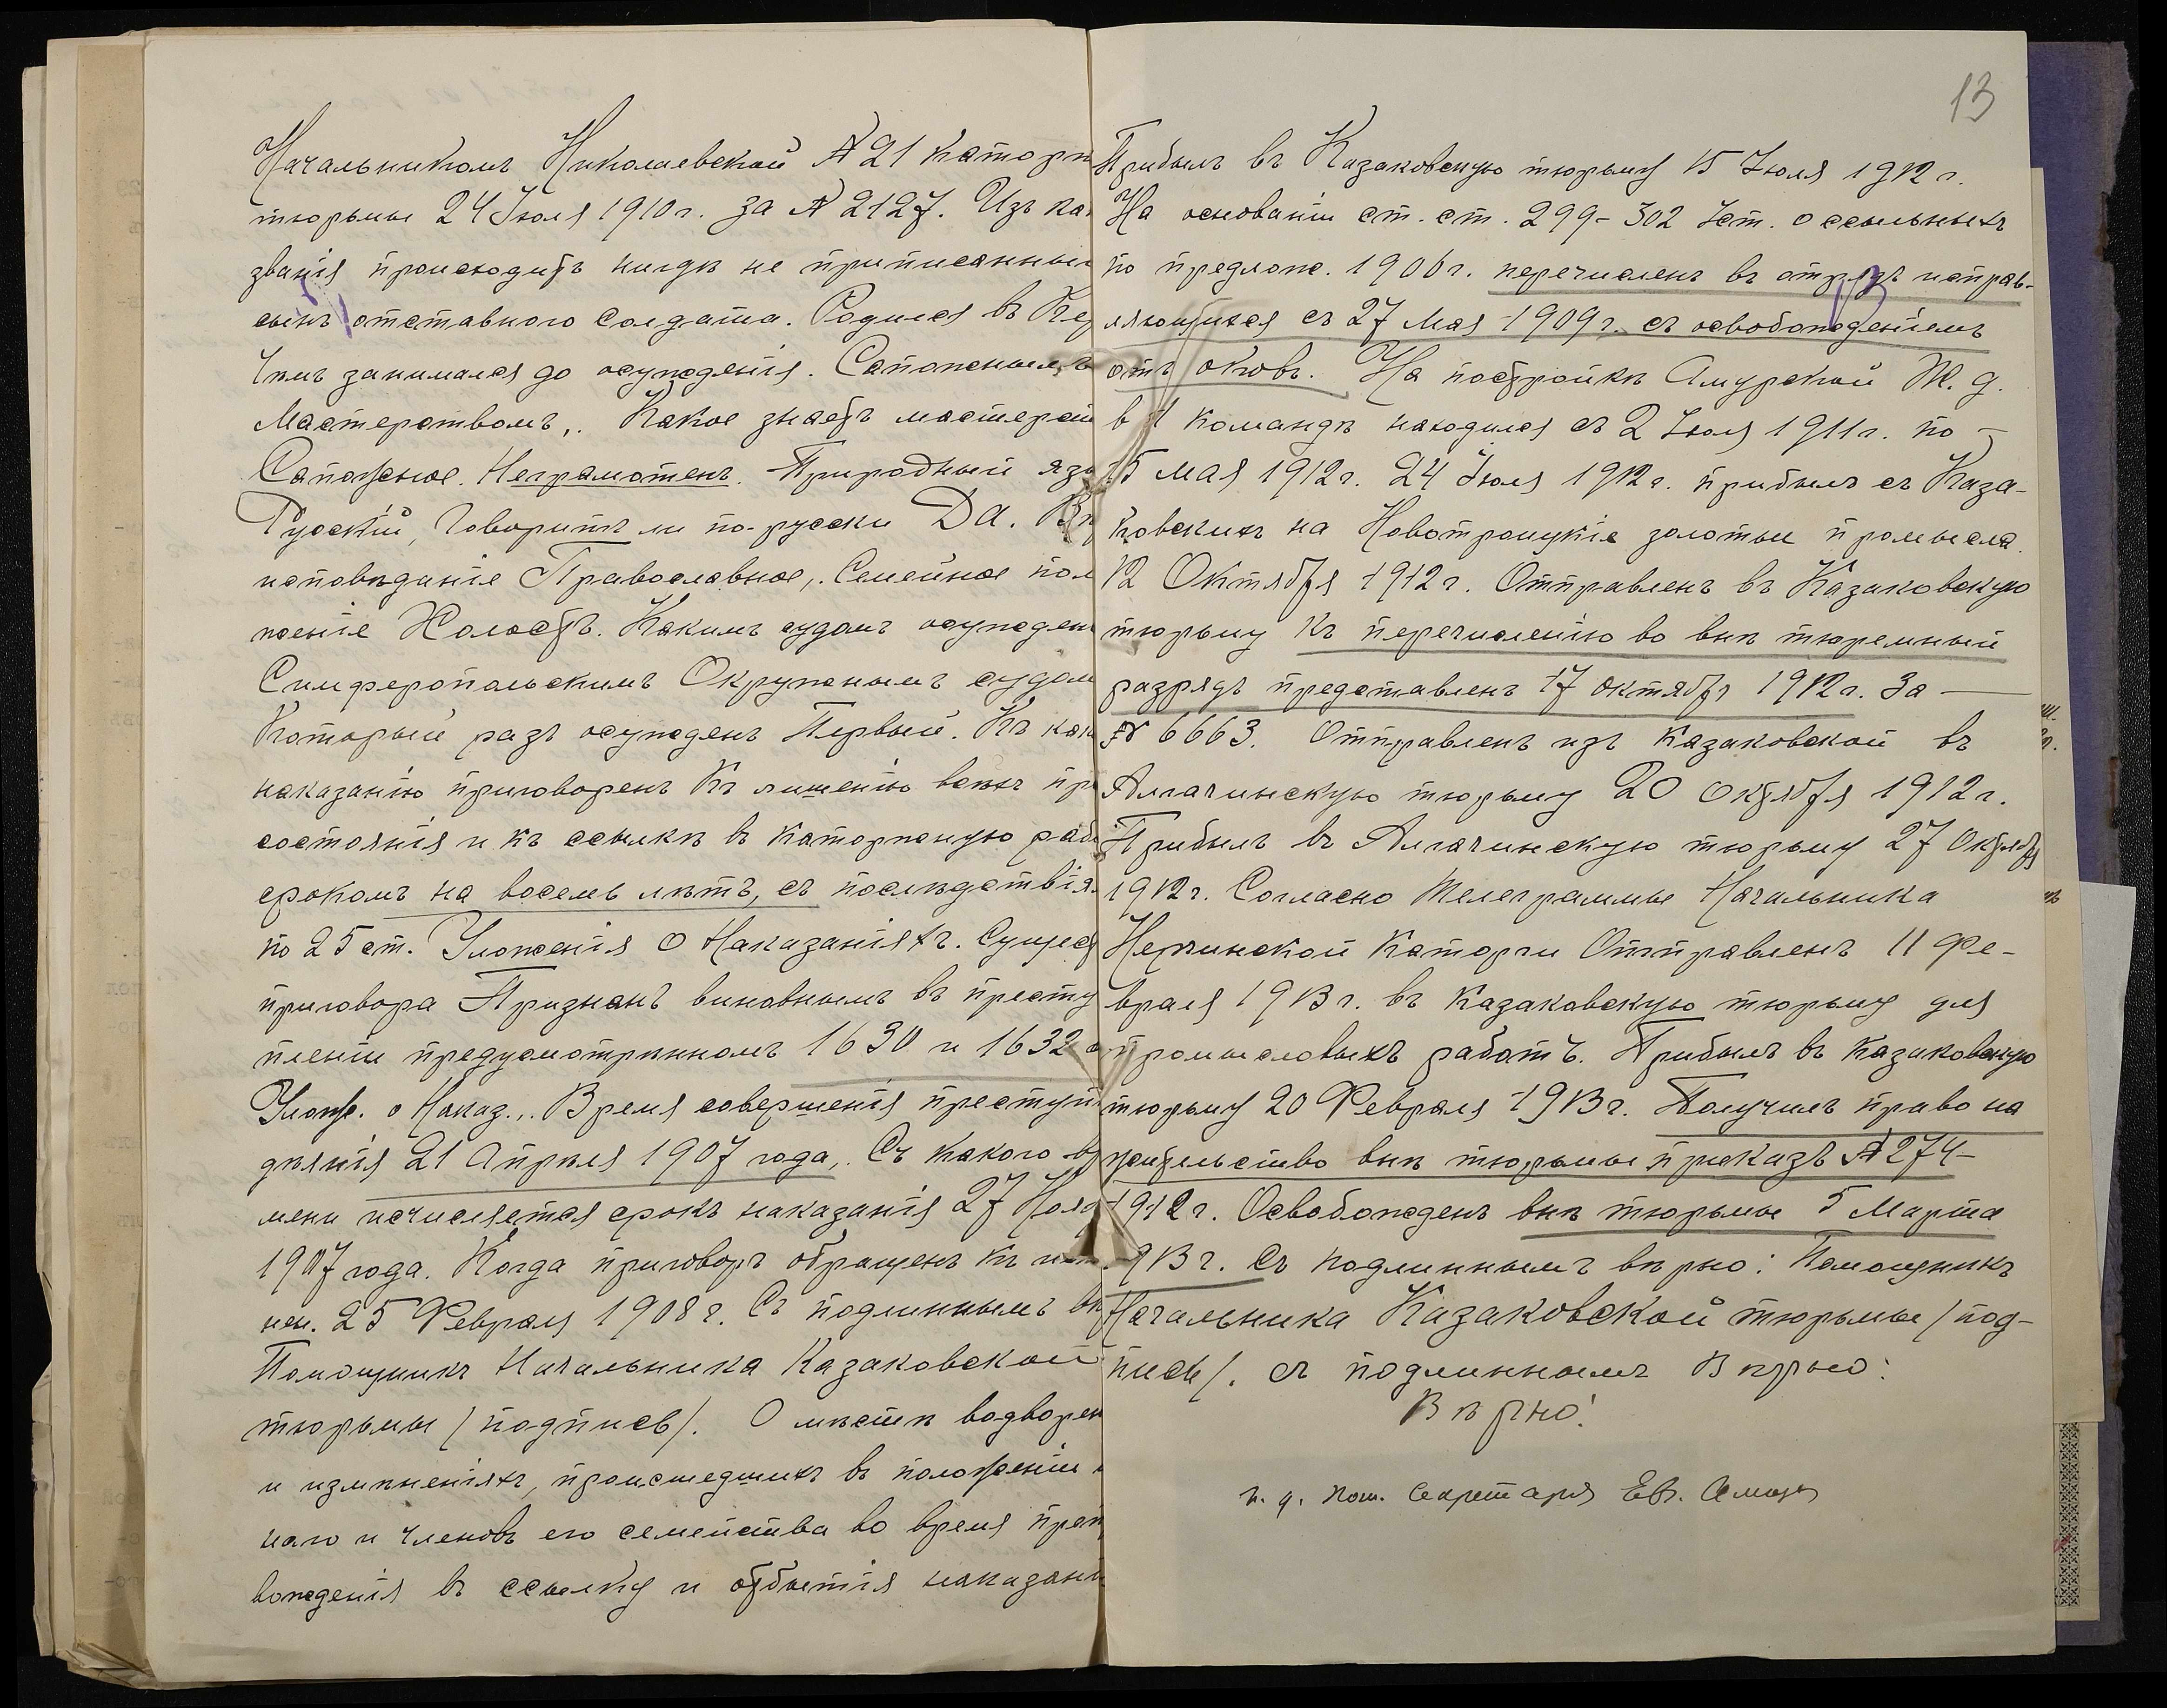 Начальникомъ Николаевской № 21 каторж
тюрьмы 24 Іюля 1910 г. за № 2127. Изъ ка
званія происходитъ нигдѣ не приписанный
сынъ отставного солдата. Родился въ
Чѣмъ занимался до осужденія. Сапожнымъ
Мастерствомъ,. Какое знаетъ мастерст
Сапожное. Неграмотенъ. Природный язы
Русскій, Говоритъ ли по-русски Да. Вѣ
исповѣданіе Православное,. Семейное пол
женіе Холостъ. Какимъ судомъ осужден
Симферопольскимъ Окружнымъ судом
Который разъ осужденъ Первый. Къ как
наказанію приговоренъ Къ лишенію всѣхъ пр
состоянія и къ ссылкѣ въ каторжную раб
срокомъ на восемь лѣтъ, съ послѣдствія
по 25 ст. Уложенія о Наказаніяхъ. Сущес
приговора Признанъ виновнымъ въ престу
пленіи предусмотрѣнномъ 1630 и 1632
Улож. о Наказ.,. Время совершенія преступ
дѣянія 21 Апрѣля 1907 года,. Съ какого вр
мени исчисляется срокъ наказанія 27 Нояб
1907 года. Когда приговоръ обращенъ къ исп
нен. 25 Февраля 1908 г. Съ подлиннымъ вѣ
Помощникъ Начальника Казаковской
тюрьмы /подпись/. О мѣстѣ водворен
и измѣненіяхъ, происшедшихъ въ положеніи
наго и членовъ его семейства во время преп
вожденія въ ссылку и отбытія наказані
13
Прибылъ въ Казаковскую тюрьму 15 Іюля 1912 г.
На основаніи ст. ст. 299-302 Уст. о ссыльныхъ
по предлож. 1906 г. перечисленъ въ отрядъ исправ-
ляющихся съ 27 Мая 1909 г. съ освобожденіемъ
отъ оковъ. На постройкѣ Амурской Ж. д.
в 1 командѣ находился съ 2 Іюля 1911 г. по -
15 мая 1912 г. 24 Іюля 1912 г. прибылъ съ Каза-
ковскихъ на Новотроицкіе золотые промысла.
12 Октября 1912 г. Отправленъ въ Казаковскую
тюрьму Къ перечисленію во внѣ тюремный
разрядъ представленъ 17 октября 1912 г. За —
№ 6663. Отправленъ изъ Казаковской въ
Алгачинскую тюрьму 20 октября 1912 г.
Прибылъ въ Алгачинскую тюрьму 27 Октября
1912 г. Согласно Телеграммы Начальника
Нерчинской Каторги Отправленъ 11 Фе-
враля 1913 г. въ Казаковскую тюрьму для
промысловыхъ работъ. Прибылъ въ Казаковскую
тюрьму 20 Февраля 1913 г. Получилъ право на
жительство внѣ тюрьмы приказъ № 274-
1912 г. Освобожденъ внѣ тюрьмы 5 Марта
1913 г. Съ подлиннымъ вѣрно: Помощникъ
Начальника Казаковской тюрьмы /под-
пись/. съ подлиннымъ Вѣрно:
Вѣрно:
и. д. пом. Секретаря Евг.